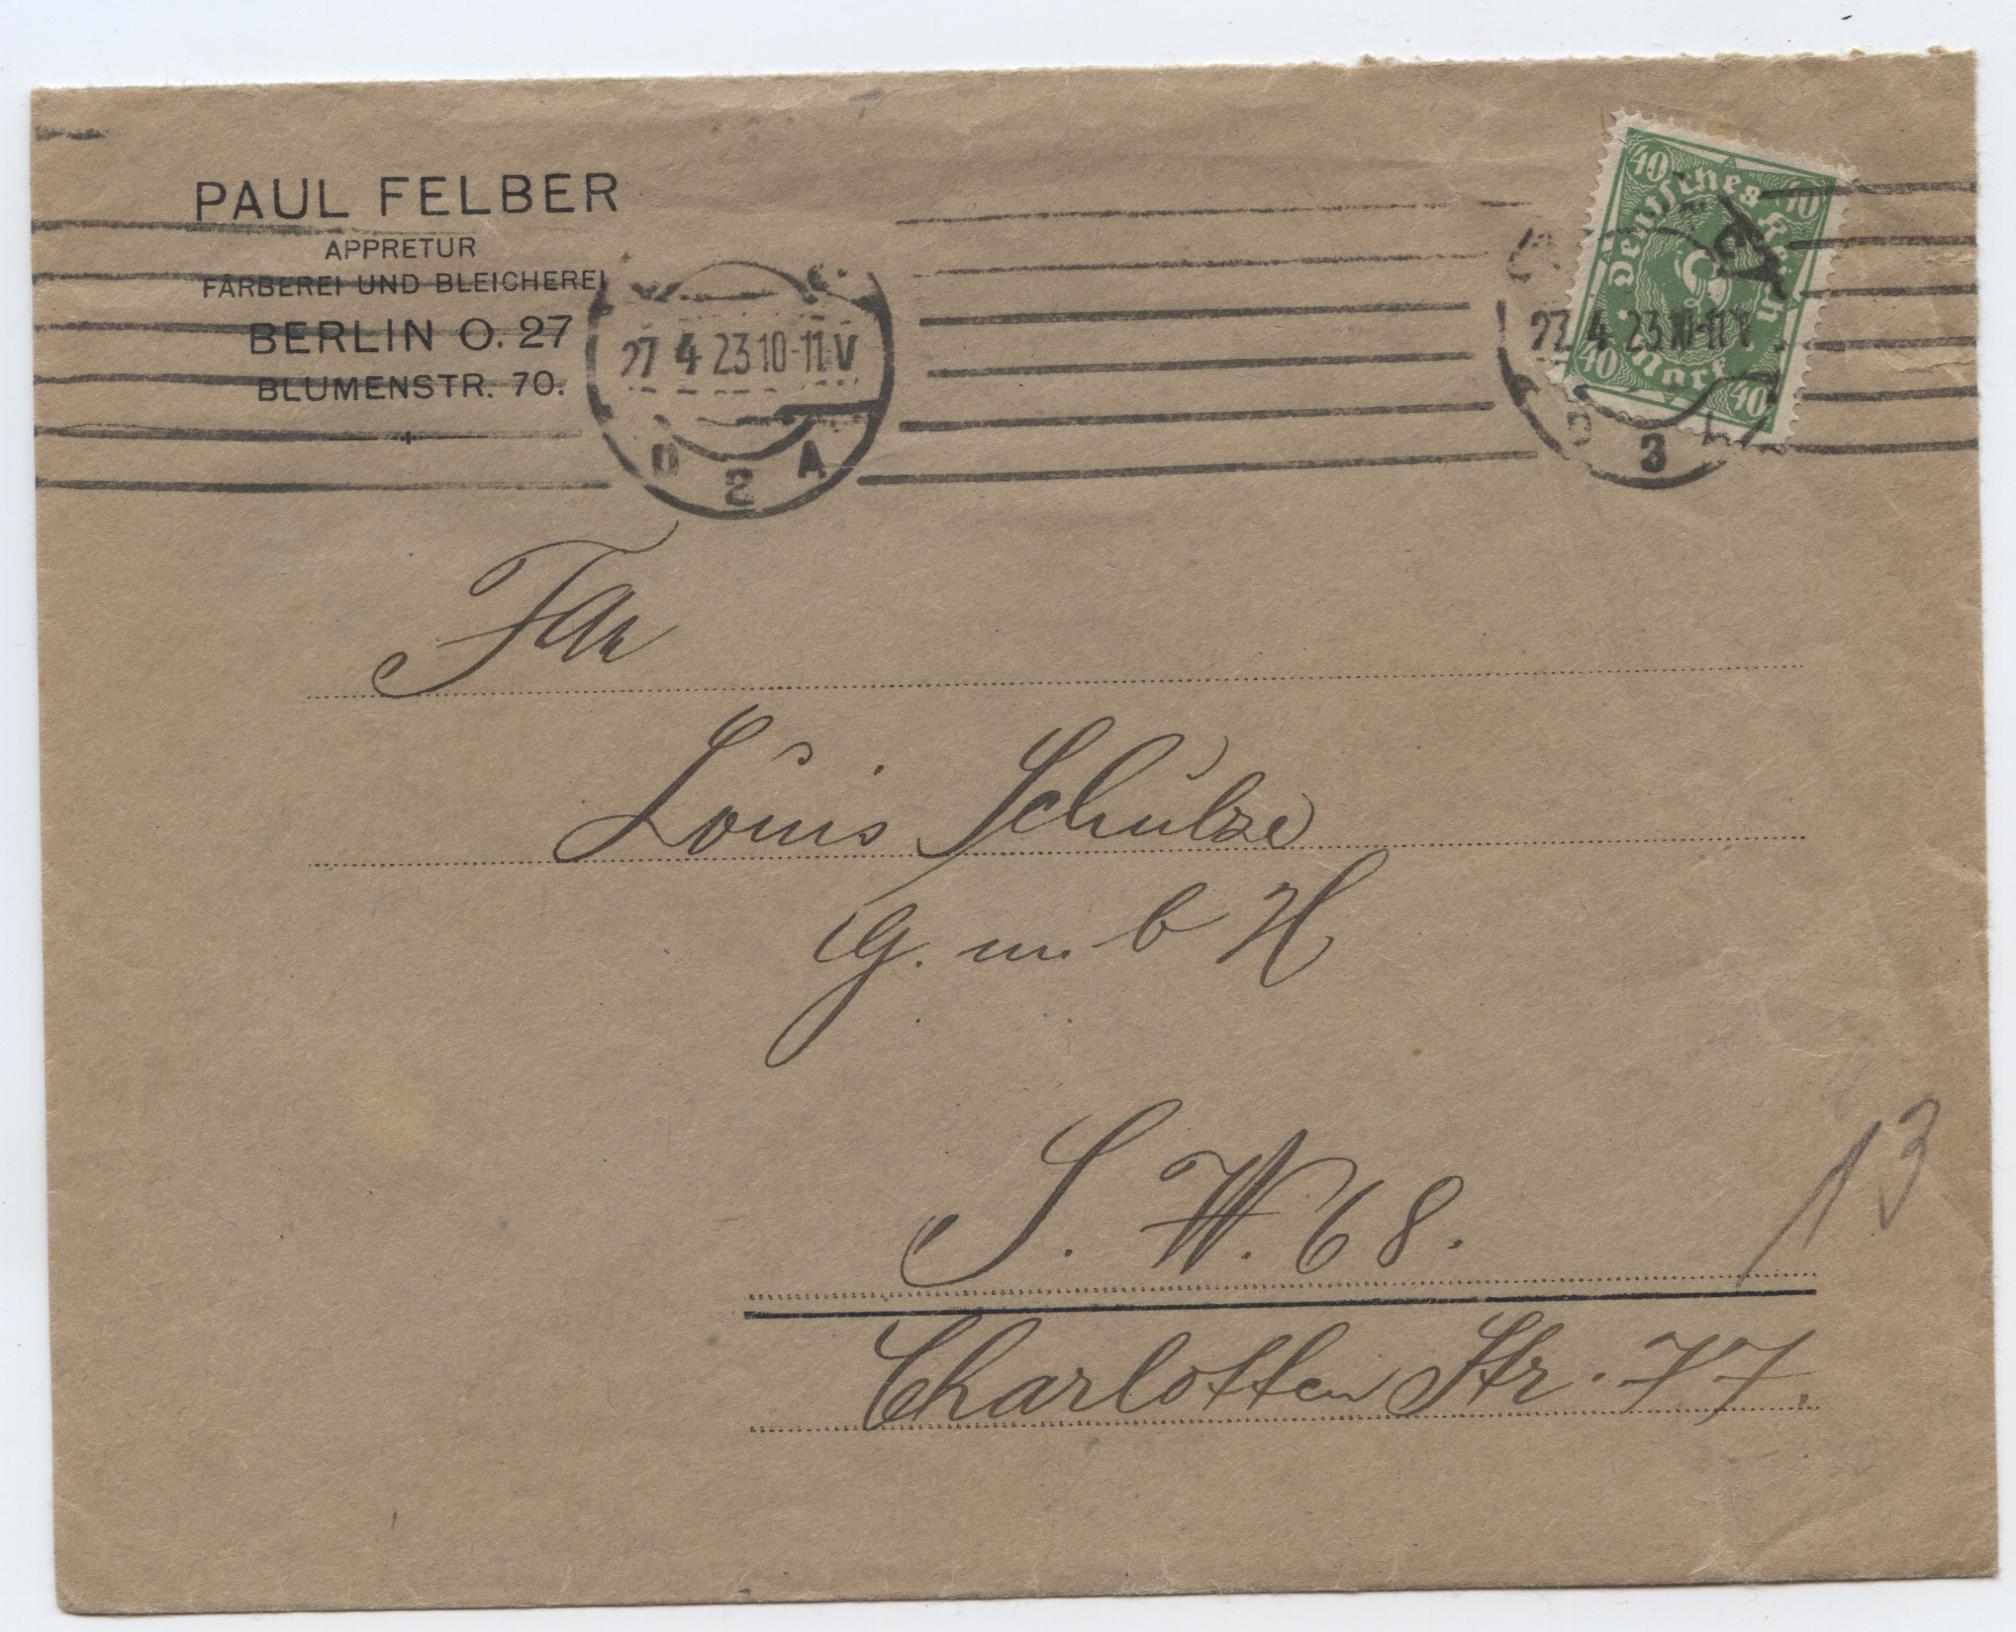 PAUL FELBER
APPRETUR
FÄRBEREI UND BLEICHEREI
BERLIN O. 27
BLUMENSTR. 70.
27 4 23 10-11 V
2 A
40 40
Deutsches Reich
27. 4 23 10-11 V
40 Mark 40
3
Louis Schulze
G. m. b H
S. W. 68.
13
Charlotten Str. 77.